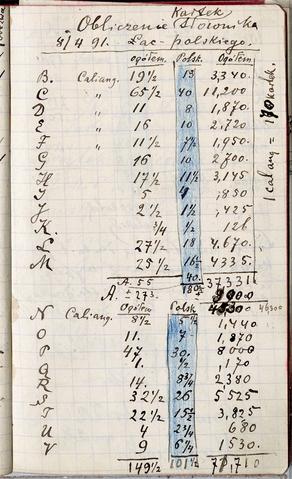 Kartek
Obliczenie Słownika
8/4 91. Łac-polskiego.
ogółem. Polsk. Ogółem.
B. Caliang. 19½ 13 3,340.
C " 65½ 40 11,200
D " 11 8 1,870.
E " 16 10 2,720
F " 11½ 7½ 1,950.
G 16 10 2,700.
H 17½ 11½ 3,145
I 5 4 ,850
J 2½ 1½ ,425
K. ¾ ½ 126
L 27½ 18 4.670.
M 25½ 16½ 4335.
1 cal ang = 170 kartek.
A. 55 40. 37331
A. ± 273. 180½ 9000
46300 46300
N Caliang. Ogółem 8½ Polsk 5½ 1,440
O 11. 7 1,870
P 47 30. 8000
Q 1. ½ ,170
R 14. 8¾ 2380
S 32½ 26 5525
T 22½ 15½ 3,825
U 4 2¾ 680
V 9 6¼ 1530.
149½ 101½ 71,710